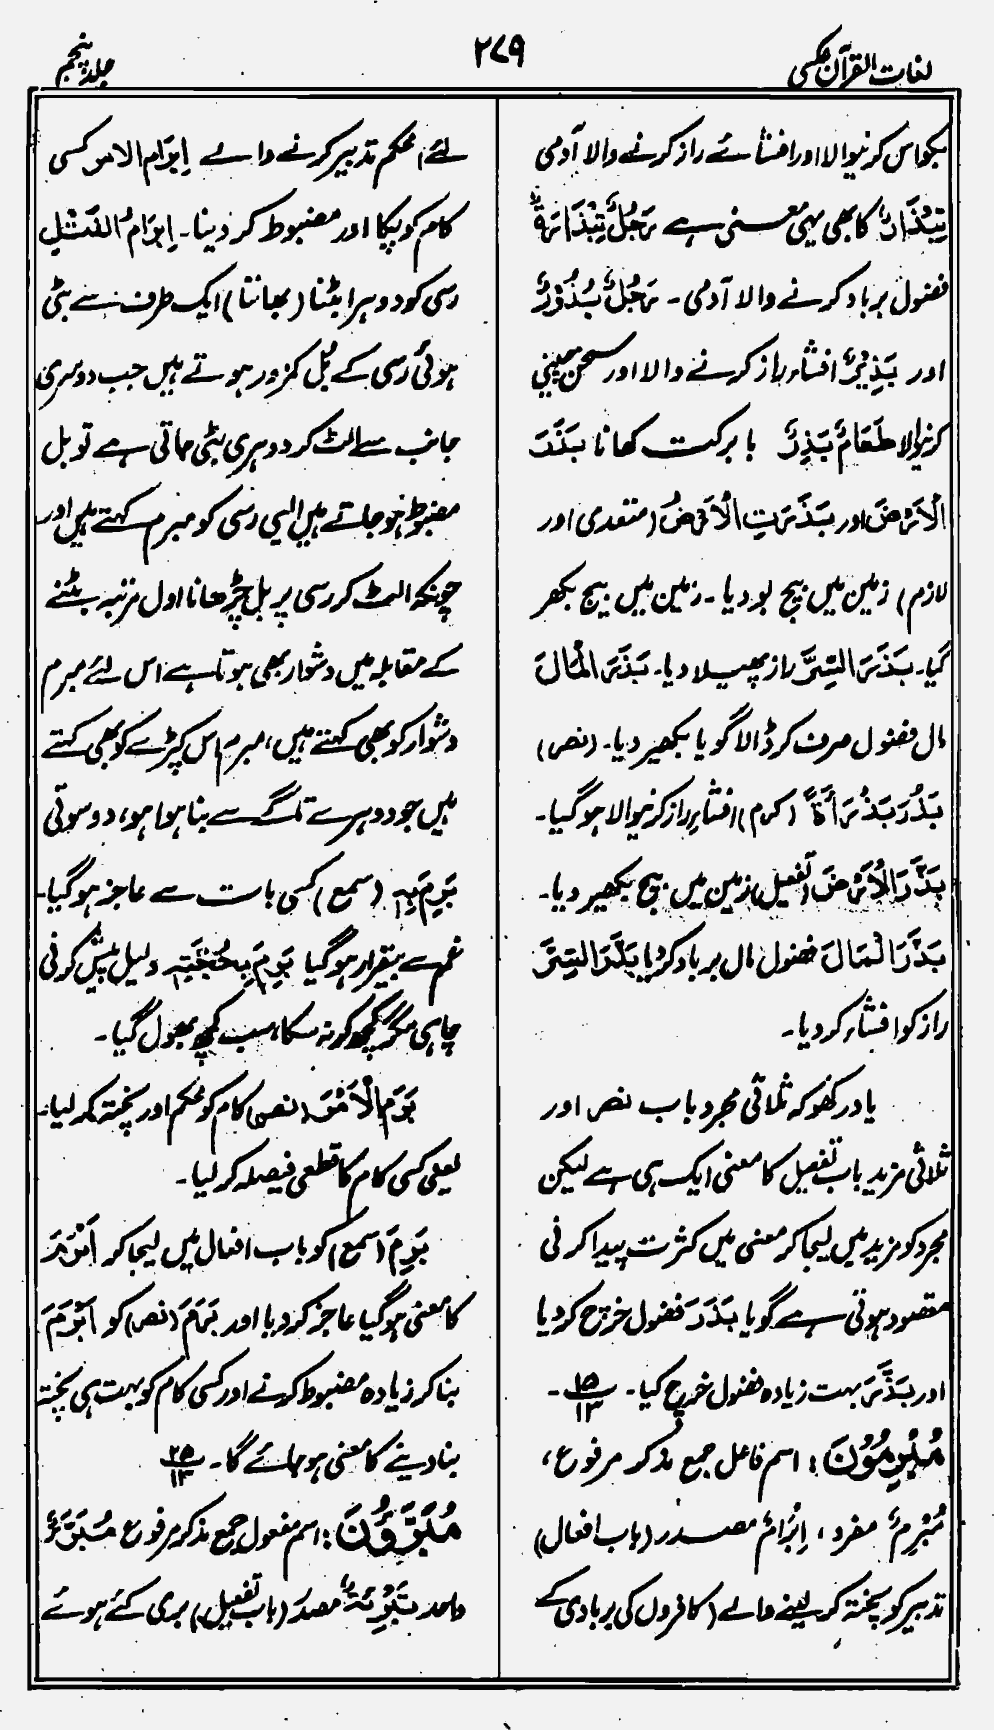 لغات القرآن عکسی
۲۷۹
جلد پنجم
بکواس کرنیوالا اور افشائے راز کرنے والا آدمی
تِبْذَارٌ کا بھی یہی معنی ہے رَجُلٌ تِبْذَارَۃٌ
فضول برباد کرنے والا آدمی۔ رَجُلٌ بُذُوْرٌ
اور بَذِیْرٌ افشاء راز کرنے والا اور سخن چینی
کرنیوالا طَعَامٌ بَذِرٌ بابرکت کھانا بَذَرَ
الْاَرْضَ اور بَذَرَتِ الْاَرْضُ (متعدی اور
لازم) زمین میں بیج بو دیا۔ زمین میں بیج بکھر
گیا۔ بَذَرَ السِّرَّ راز پھیلا دیا۔ بَذَرَ الْمَالَ
مال فضول صرف کر ڈالا گویا بکھیر دیا۔ (نصر)
بَذُرَ بَذَارَۃً (کرم) افشاءِ راز کرنیوالا ہوگیا۔
بَذَّرَ الْاَرْضَ (تفعیل) زمین میں بیج بکھیر دیا۔
بَذَّرَ الْمَالَ فضول مال برباد کر دیا بَذَّرَ السِّرَّ
راز کو افشاء کر دیا۔
یاد رکھو کہ ثلاثی مجرد باب نصر اور
ثلاثی مزید باب تفعیل کا معنی ایک ہی ہے لیکن
مجرد کو مزید میں لیجا کر معنی میں کثرت پیدا کرنی
مقصود ہوتی ہے گویا بَذَرَ فضول خرچ کر دیا
اور بَذَّرَ بہت زیادہ فضول خرچ کیا۔ ۱۵/۱۳۔
مُبْرِمُوْنَ: اسم فاعل جمع مذکر مرفوع،
مُبْرِمٌ مفرد، اِبْرَامٌ مصدر (باب افعال)
تدبیر کو پختہ کر لینے والے (کافروں کی بربادی کے
لئے) محکم تدبیر کرنے والے اِبْرَام الامر کسی
کام کو پکا اور مضبوط کر دینا۔ اِبْرَامُ الْفَتْلِ
رسی کو دوہرا بٹنا (بھانتا) ایک طرف سے بٹی
ہوئی رسی کے بل کمزور ہوتے ہیں جب دوسری
جانب سے الٹ کر دوہری بٹی جاتی ہے تو بل
مضبوط ہو جاتے ہیں ایسی رسی کو مبرم کہتے ہیں اور
چونکہ الٹ کر رسی پر بل چڑھانا اول مرتبہ بٹنے
کے مقابلہ میں دشوار بھی ہوتا ہے اس لئے مبرم
دشوار کو بھی کہتے ہیں، مبرم اس کپڑے کو بھی کہتے
ہیں جو دوہرے تاگے سے بنا ہوا ہو، دوسوتی
بَرِمَ بِہٖ (سمع) کسی بات سے عاجز ہوگیا۔
غم سے بیقرار ہوگیا بَرِمَ بِحُجَّتِہٖ دلیل پیش کرنی
چاہی مگر کچھ کر نہ سکا، سب کچھ بھول گیا۔
بَرَمَ الْاَمْرَ (نصر) کام کو محکم اور پختہ کر لیا۔
یعنی کسی کام کا قطعی فیصلہ کر لیا۔
بَرِمَ (سمع) کو باب افعال میں لیجا کر اَبْرَمَ
کا معنی ہوگیا عاجز کر دیا اور بَرَمَ (نصر) کو اَبْرَمَ
بنا کر زیادہ مضبوط کرنے اور کسی کام کو بہت ہی پختہ
بنا دینے کا معنی ہو جائے گا۔ ۲۵/۱۳
مُبَرَّءُوْنَ: اسم مفعول جمع مذکر مرفوع مُبَرَّءٌ
واحد تَبْرِئَۃٌ مصدر (باب تفعیل) بری کئے ہوئے